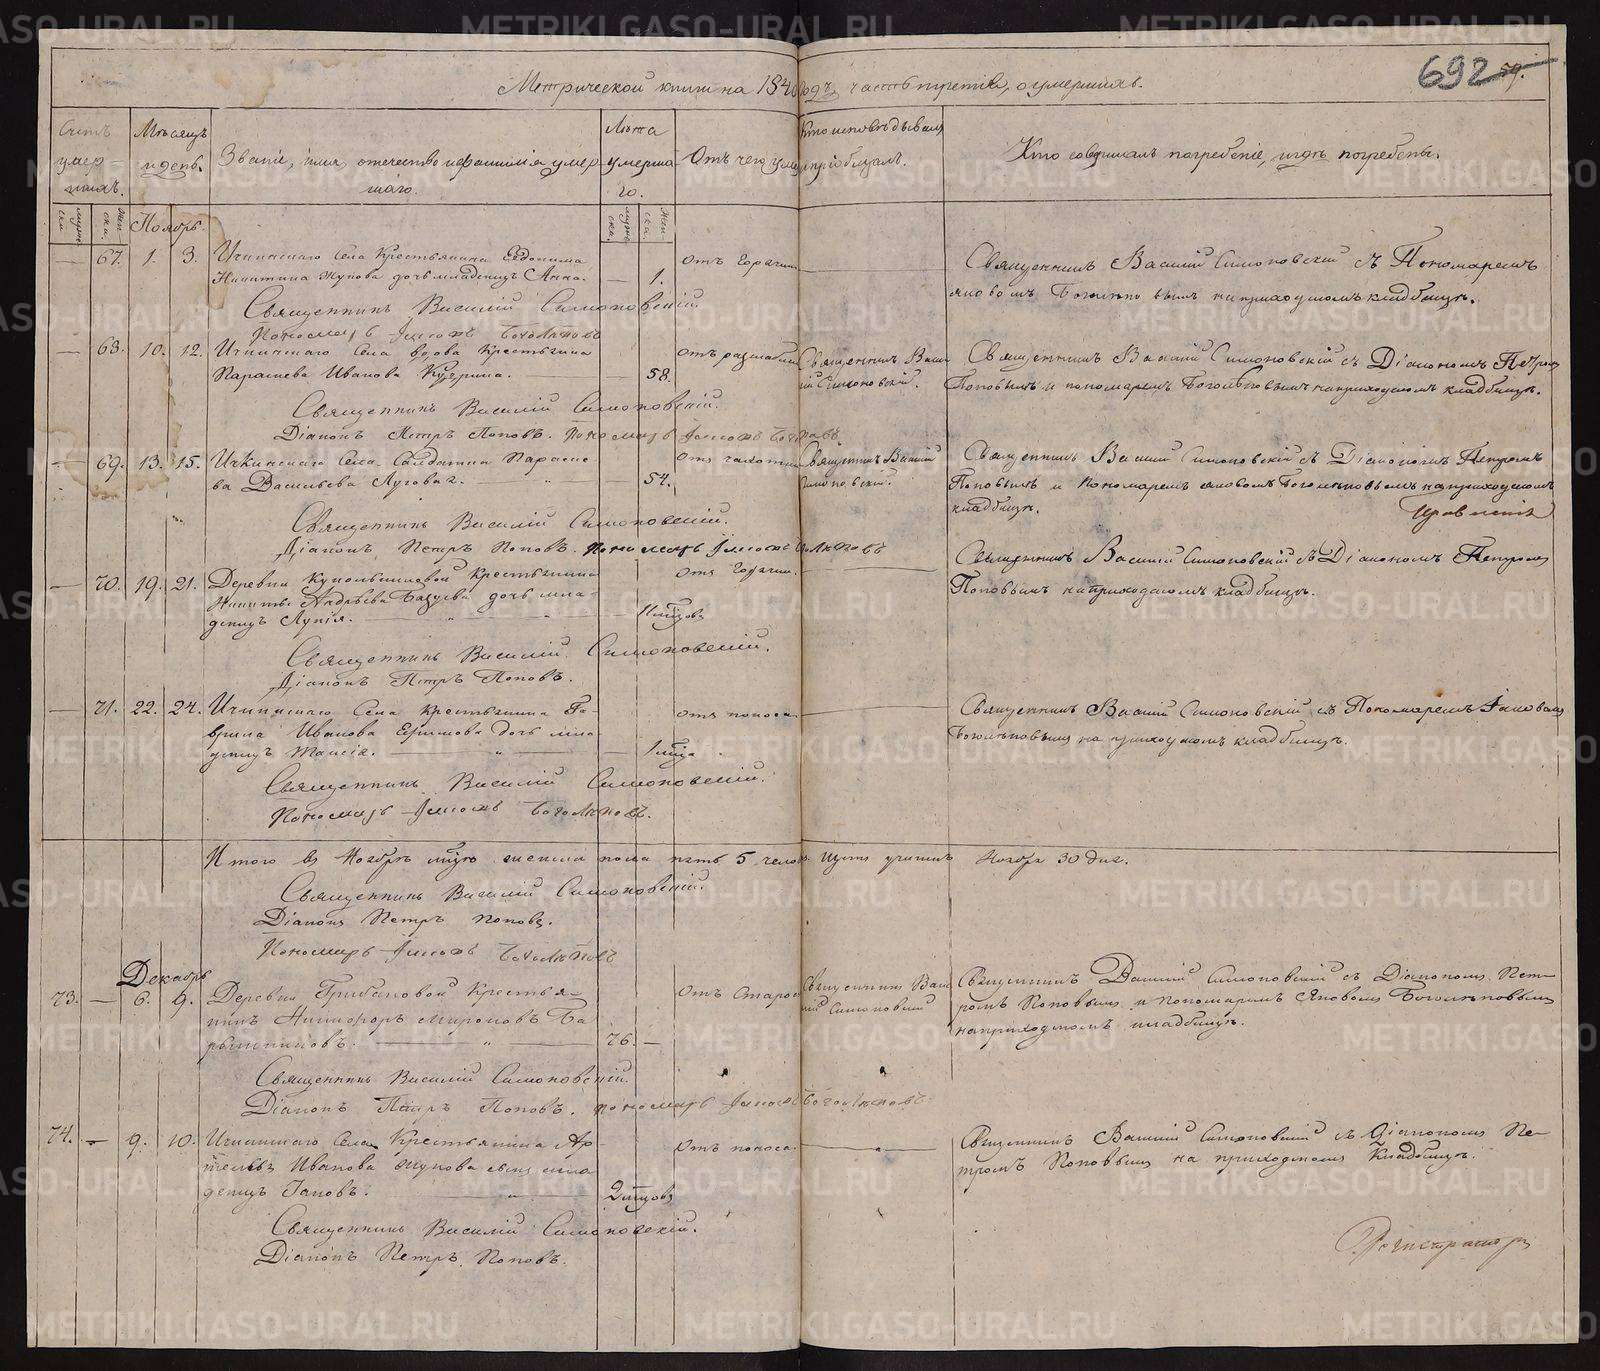 692
59.
Метрической книги на 184 годъ часть третія, о умершихъ.
Счетъ умер-шихъ.
Мѣсяцъ и день.
Званіе, имя, отечество и фамилія умер-шаго.
Лѣта умерша-го.
Отъ чего умеръ
Кто исповѣдывалъ и пріобщалъ.
Кто совершалъ погребеніе, и гдѣ погребены.
Ноябрь.
67. 1. 3. Ичкинскаго Села Крестьянина Евдокима
Никитина Жукова дочь младенецъ Анна. 1.
Отъ Горячки
Священникъ Василій Симоновскій съ Пономаремъ
Яковомъ Боголѣповымъ на приходскомъ кладбищѣ.
Священникъ Василій Симоновскій
Пономарь Іаковъ Боголѣповъ
68. 10. 12. Ичкинскаго Села вдова Крестьянина
Парасева Иванова 58.
Священникъ Васи-
лій Симоновскій.
Священникъ Василій Симоновскій съ Діакономъ Петромъ
Поповымъ и пономаремъ Боголѣповымъ на приходскомъ кладбищѣ.
Священникъ Василій Симоновскій.
Діаконъ Петръ Поповъ. Пономарь Іаковъ Боголѣповъ
69. 13. 15. Ичкинскаго Села Солдатка Параске-
ва Васильева Луговая. 54.
Отъ чахотки
Священникъ Василій
Симоновскій.
Священникъ Василій Симоновскій съ Діакономъ Петромъ
Поповымъ и Пономаремъ Яковомъ Боголѣповымъ на приходскомъ
кладбищѣ.
Священникъ Василій Симоновскій.
Діаконъ Петръ Поповъ. Пономарь Іаковъ Боголѣповъ
70. 19. 21. Деревни Крестьянина
Никиты Андрѣева дочь мла-
денецъ Лукія.
Отъ Горячки.
Священникъ Василій Симоновскій съ Діакономъ Петромъ
Поповымъ на приходскомъ кладбищѣ.
Священникъ Василій Симоновскій.
Діаконъ Петръ Поповъ.
71. 22. 24. Ичкинскаго Села крестьянина Га-
врила Иванова Ефимова дочь мла
денецъ Таисія. 1 мца
Отъ поноса
Священникъ Василій Симоновскій съ Пономаремъ Іаковомъ
Боголѣповымъ на приходскомъ кладбищѣ.
Священникъ Василій Симоновскій.
Пономарь Іаковъ Боголѣповъ.
Итого въ Ноябрѣ мцѣ женска пола пять 5 челов. Ноября 30 дня.
Священникъ Василій Симоновскій.
Діаконъ Петръ Поповъ.
Пономарь Іаковъ Боголѣповъ
Декабрь
73. 6. 9. Деревни Грибановой Крестья-
нинъ Никифоръ Мироновъ Ба-
рышниковъ. 76.
Отъ Старос
Священникъ Васи
лій Симоновскій
Священникъ Василій Симоновскій съ Діакономъ Пет-
ромъ Поповымъ и пономаремъ Яковомъ Боголѣповымъ
на приходскомъ кладбищѣ.
Священникъ Василій Симоновскій
Діаконъ Петръ Поповъ. Пономарь Іаковъ Боголѣповъ
74. 9. 10. Ичкинскаго Села Крестьянина Ар-
темья Иванова Жукова сынъ мла
денецъ Іаковъ. 2 мцовъ
Отъ поноса.
Священникъ Василій Симоновскій съ Діакономъ Пе-
тромъ Поповымъ на приходскомъ Кладбищѣ.
Священникъ Василій Симоновскій.
Діаконъ Петръ Поповъ.
Регистраторъ
METRIKI.GASO-URAL.RU